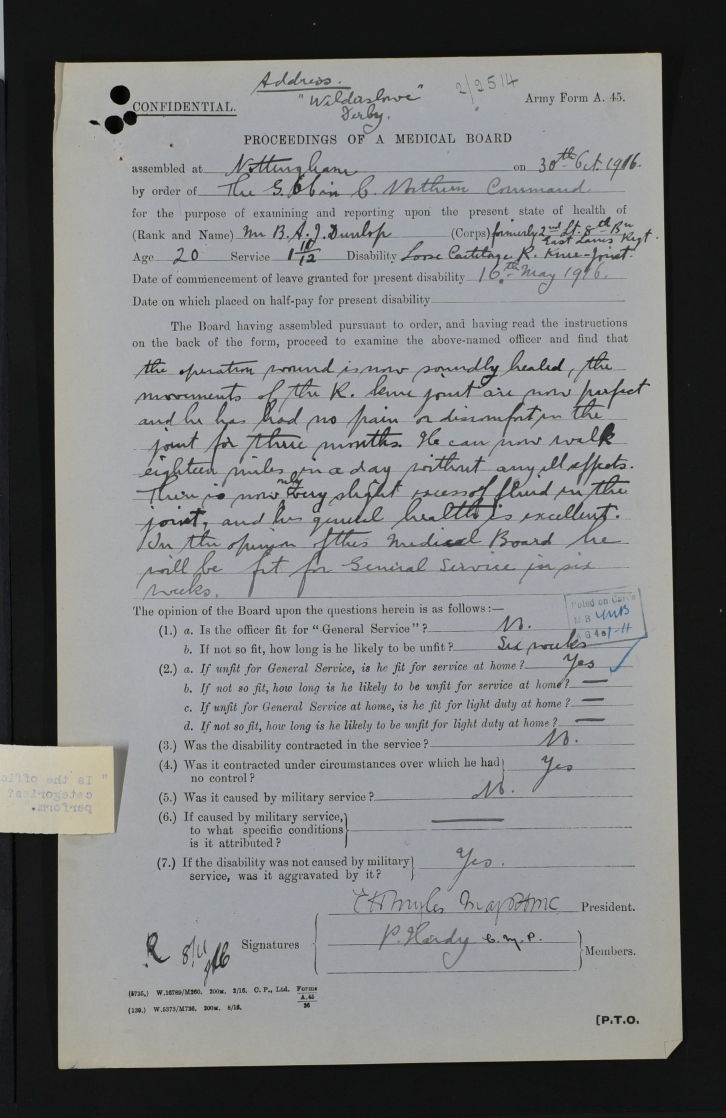 Address.
"Wilderslowe"
Derby.
2/2514
CONFIDENTIAL.
Army Form A. 45.
PROCEEDINGS OF A MEDICAL BOARD
assembled at Nottingham on 30th Oct. 1916.
by order of The G.O.C. in C. Northern Command
for the purpose of examining and reporting upon the present state of health of
(Rank and Name) Mr B. A. J. Dunlop (Corps) formerly 2nd Lt. 8th Bn
East Lancs Regt.
Age 20 Service 1 10/12 Disability Loose Cartilage R. Knee-Joint.
Date of commencement of leave granted for present disability 16th May 1916.
Date on which placed on half-pay for present disability
The Board having assembled pursuant to order, and having read the instructions
on the back of the form, proceed to examine the above-named officer and find that
the operation wound is now soundly healed, the
movements of the R. knee joint are now perfect
and he has had no pain or discomfort in the
joint for three months. He can now walk
eighteen miles in a day without any ill effects.
There is now only very slight excess of fluid in the
joint, and his general health is excellent.
In the opinion of this Medical Board he
will be fit for General Service in six
weeks.
The opinion of the Board upon the questions herein is as follows:—
Noted on Cards
(1.) a. Is the officer fit for "General Service"? No.
b. If not so fit, how long is he likely to be unfit? Six weeks
(2.) a. If unfit for General Service, is he fit for service at home? Yes
b. If not so fit, how long is he likely to be unfit for service at home? —
c. If unfit for General Service at home, is he fit for light duty at home? —
d. If not so fit, how long is he likely to be unfit for light duty at home? —
(3.) Was the disability contracted in the service? No.
(4.) Was it contracted under circumstances over which he had
no control? Yes
(5.) Was it caused by military service? No.
(6.) If caused by military service,
to what specific conditions
is it attributed? —
(7.) If the disability was not caused by military
service, was it aggravated by it? Yes.
President.
Signatures
P. Hardy C.M.P.
Members.
8/11/16
(5735.) W.16789/M260. 200M. 2/16. C. P., Ltd. Forms
A.45
26
(139.) W.5373/M736. 200M. 8/16.
[P.T.O.
"Is the offic
categories
perform.